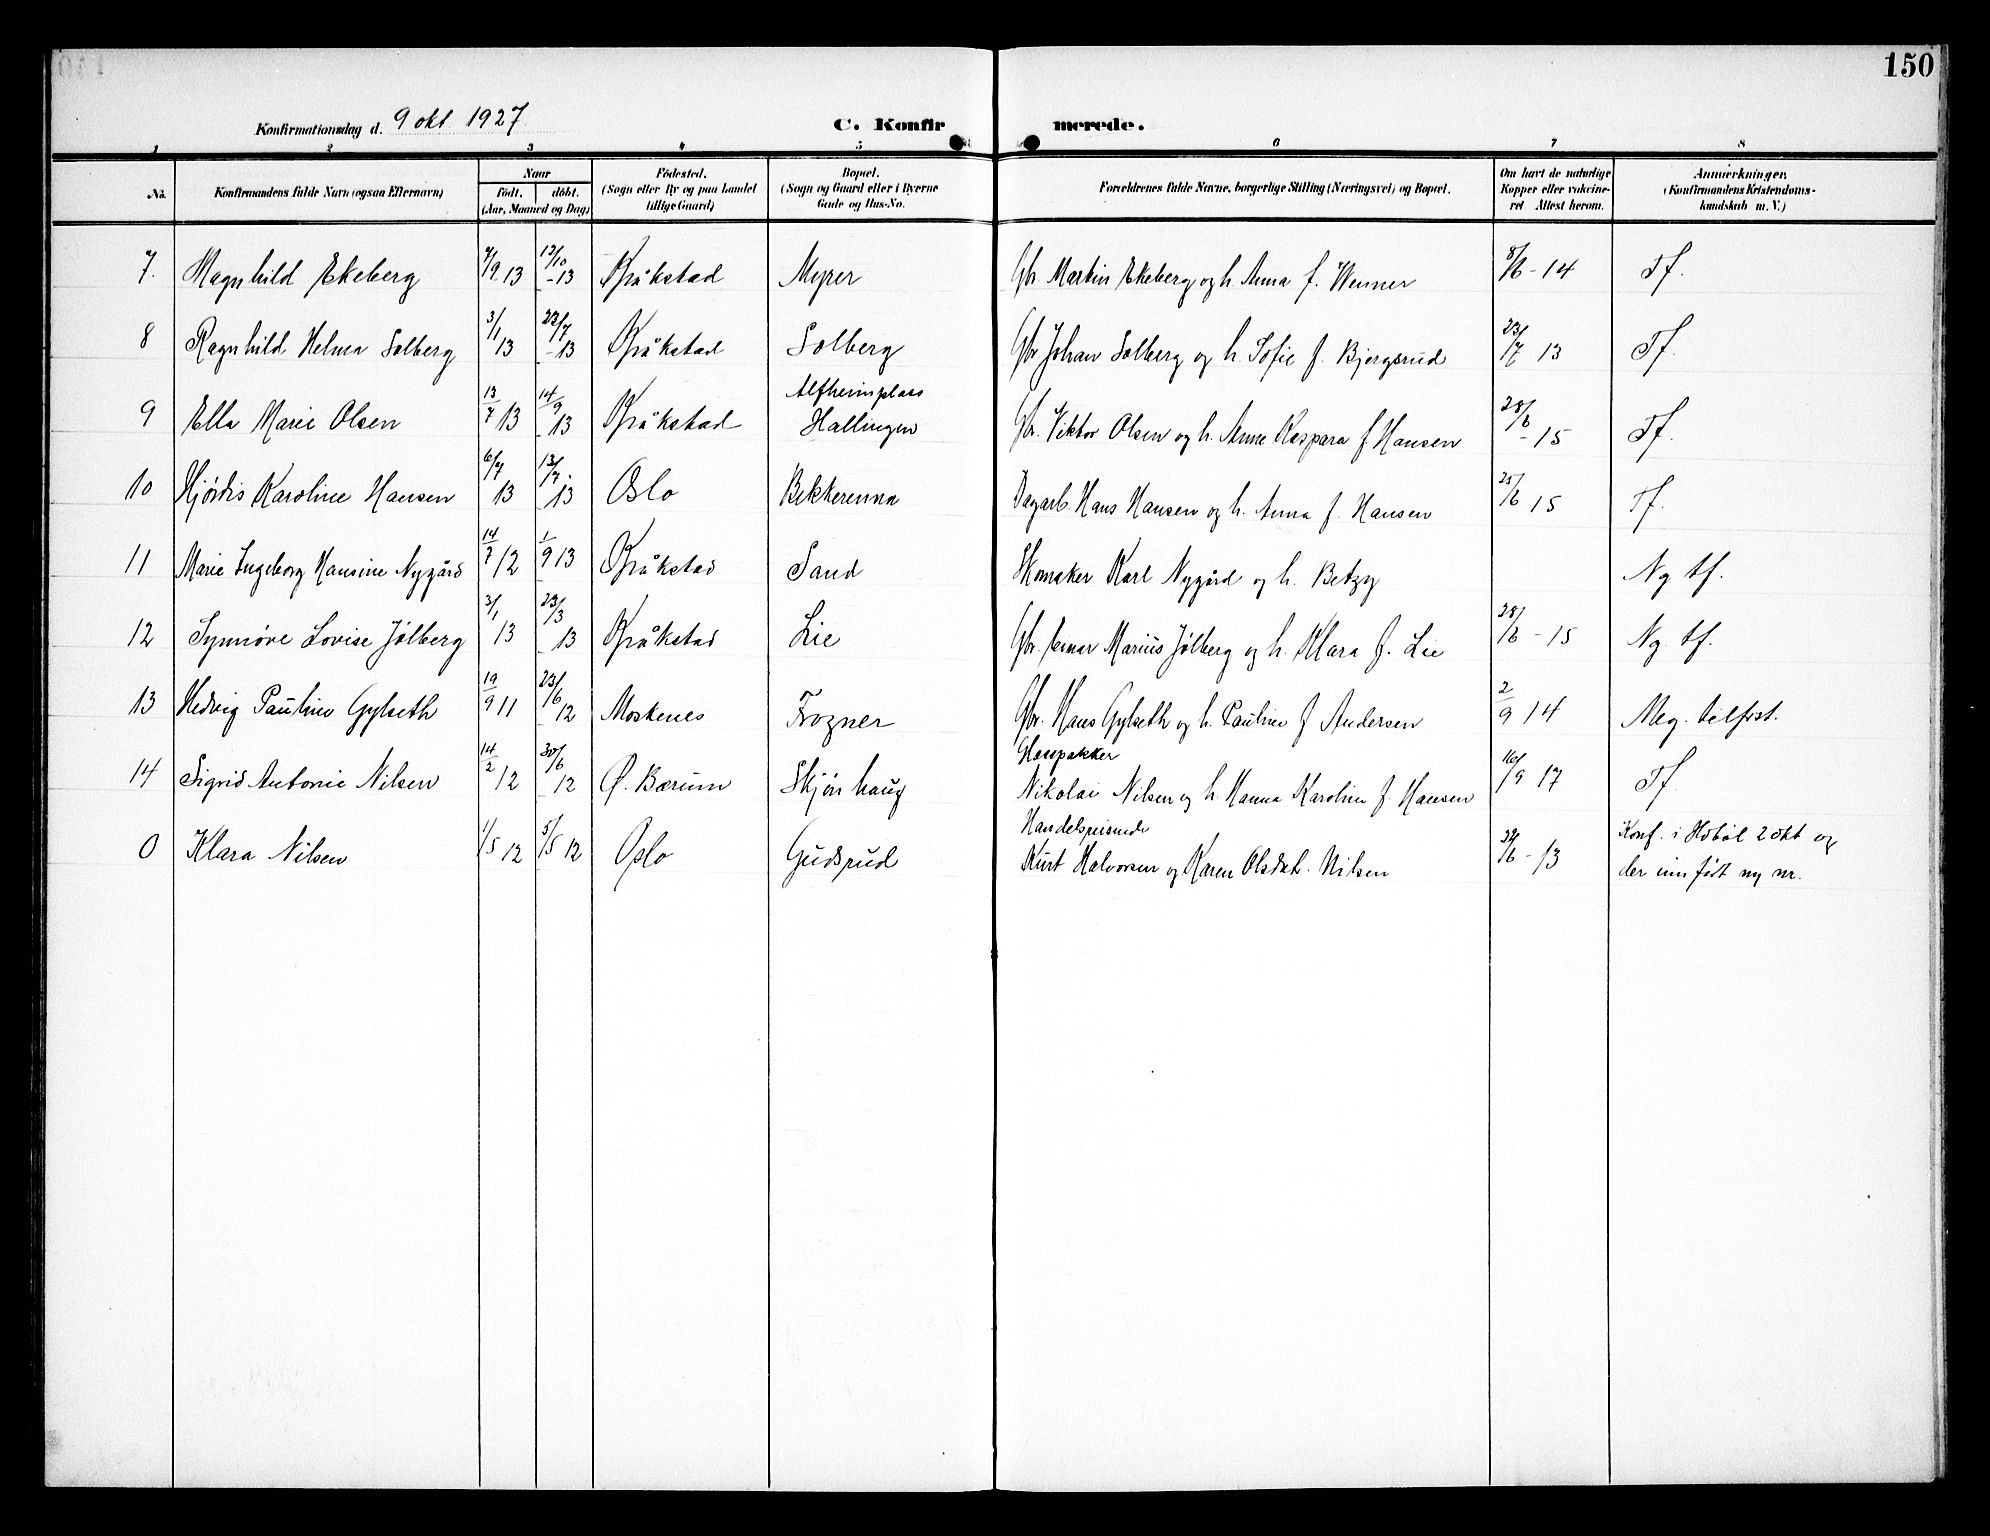 150
Konfirmationsdag d. 9 okt 1927
C. Konfir merede.
1 2 3 4 5 6 7 8
No. Konfirmandens fulde Navn (ogsaa Efternavn) Naar födt. döbt. (Aar, Maaned og Dag) Födested. (Sogn eller By og paa Landet tillige Gaard) Bopæl. (Sogn og Gaard eller i Byerne Gade og Hus-No. Forældrenes fulde Navne, borgerlige Stilling (Næringsvei) og Bopæl. Om havt de naturlige Kopper eller vakcineret Attest herom. Anmærkninger. (Konfirmandens Kristendomskundskab m. V.)
7. Magnhild Ekeberg 7/9 13 12/10 -13 Kråkstad Myrer Gbr Martin Ekeberg og h. Anna f. Wenner 8/6 - 14 Tf.
8 Ragnhild Helma Solberg 3/1 13 23/7 -13 Kråkstad Solberg Gbr Johan Solberg og h. Sofie f. Bjergsrud 23/7 13 Tf.
9 Ella Marie Olsen 13/7 13 14/9 -13 Kråkstad Alfheimplass Hallingen Gbr. Viktor Olsen og h. Anne Kaspara f Hansen 28/6 - 15 Tf.
10 Hjördis Karoline Hansen 6/7 13 13/7 -13 Oslo Bekkerenna Dagarb. Hans Hansen og h. Anna f. Hansen 25/6 15 Tf.
11 Marie Ingeborg Hansine Nygård 14/7 12 1/9 13 Kråkstad Sand Skomaker Karl Nygård og h. Betzy Ng tf.
12 Synnöve Lovise Jölberg 3/1 13 23/3 -13 Kråkstad Lie Gbr. Marius Jölberg og h. Klara f. Lie 28/6 - 15 Ng. tf.
13 Hedvig Pauline Gylseth 19/9 11 23/6 -12 Moskenes Frogner Gbr. Hans Gylseth og h. Pauline f Andersen 2/9 14 Meg. tilfrst.
14 Sigrid Antonie Nilsen 14/2 12 30/6 12 Ø. Bærum Skjön haug Glasspakker Nikolai Nilsen og h Hanna Karoline f. Hansen 16/9 17 Tf
0 Klara Nilsen 1/5 12 5/5 12 Oslo Gudsrud Handelsreisende Kurt Halvorsen og Karen Olsdtr. Nilsen /6 - 13 Konf. i Hobøl 2 okt og der innfört ny nr.